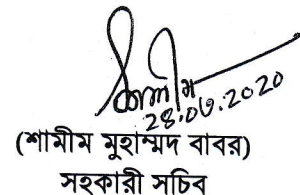 শামীম
28.06.2020
(শামীম মুহাম্মদ বাবর)
সহকারী সচিব